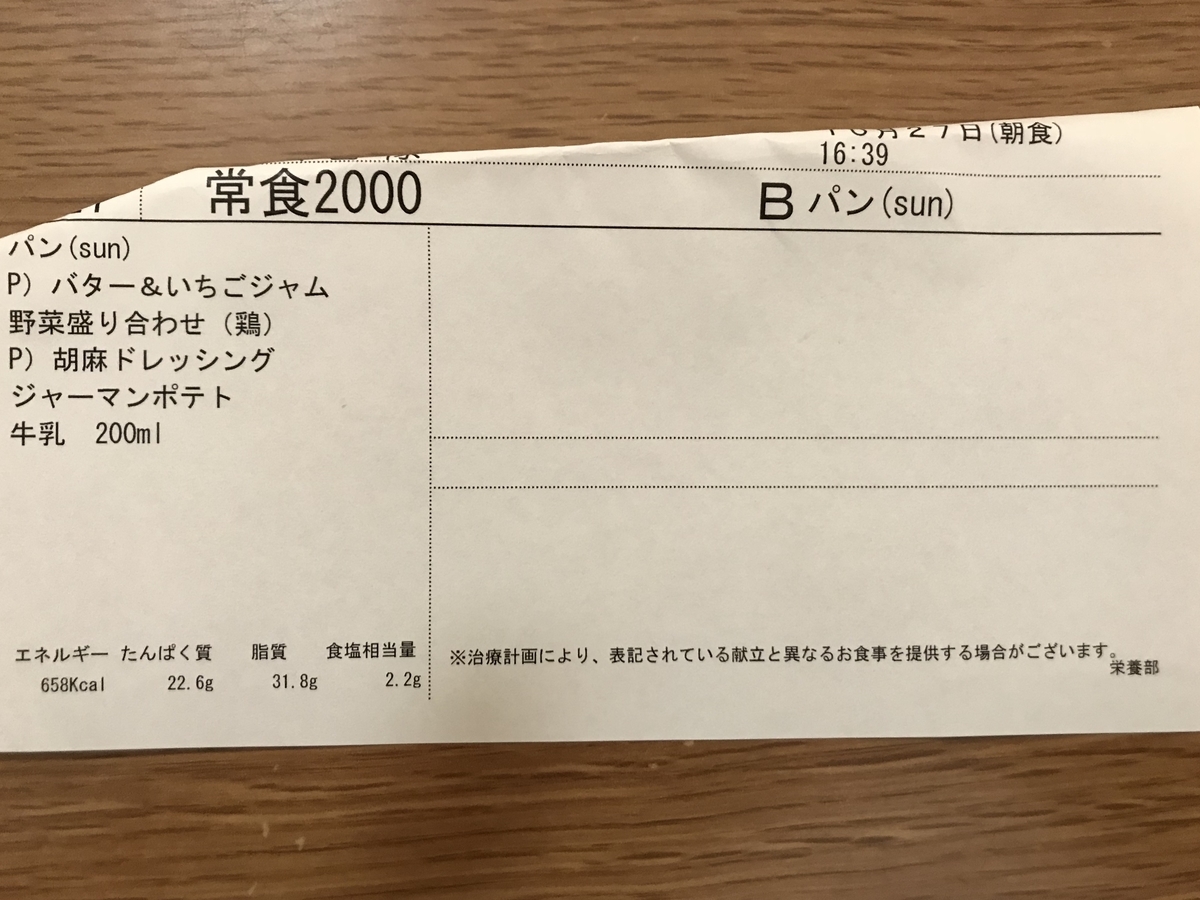 27日(朝食)
16:39
常食2000
B パン(sun)
パン(sun)
P) バター&いちごジャム
野菜盛り合わせ (鶏)
P) 胡麻ドレッシング
ジャーマンポテト
牛乳 200ml
エネルギー たんぱく質 脂質 食塩相当量
658Kcal 22.6g 31.8g 2.2g
※治療計画により、表記されている献立と異なるお食事を提供する場合がございます。
栄養部